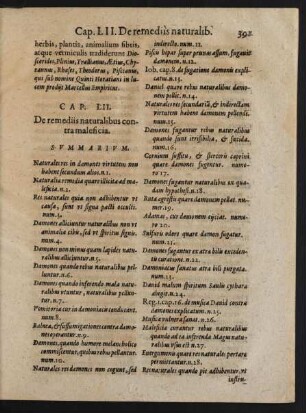 Cap. LII. De remediis naturalib. 392
herbis, plantis, animalium fibris,
acque vermiculis tradiderunt Dioscorides,
Plinius, Trallianus, Ætius,
Rhases, Theodorus,
qui sub nomine Quinti Horatiani in lucem
prodijt Marcellus Empiricus.
CAP. LII.
De remediis naturalibus contra
maleficia.
SVMMARIVM.
Naturales res in dæmones virtutem non
habent secundum alios. n.1.
Naturalia remedia quare illicita ad maleficia.
n.2.
Res naturales quia non adhibentur vt
causa, sunt vt signa pacti occulti.
num.3.
Dæmones alliciuntur naturalibus non vt
animalia cibo, sed vt spiritus signis.
num.4.
Dæmones non minus quam lapides naturalibus
alliciuntur. n.5.
Dæmones quando rebus naturalibus pelluntur.
n.6.
Dæmones quando inferenda mala naturalibus
vtuntur, & naturalibus pelluntur.
n.7.
Ponticorum cur in dæmoniacis conducant.
num.8.
Balnea, & fossiones contra dæmones
n.9.
Dæmones quando humore melancholico
commiscentur, quibus rebus pellantur.
num.10.
Naturales res dæmonem non cogunt, sed
indirectè. num.11.
Piscis iecur super prunas assum, fugauit
dæmonem. n.12.
Iob, cap.8. de fugatione dæmonis explicatum.
n.13.
Daniel quare rebus naturalibus dæmonem
pellit. n.14.
Naturales res secundariã, & indirectam
virtutem habent dæmonem pellendi.
num.15.
Dæmones fugantur rebus naturalibus
quando sunt irrisibilia, & sordida.
num.16.
Corninm suffitu, & stercoris caprini
quare dæmones fugentur. numero
17.
Dæmones fugantur naturalibus ex quadam
hypothesi. n.18.
Ruta agrestis quare dæmonem pellat. numero
19.
Adamas, cur dæmonem eijciat. numero
20.
Sulfuris odore quare dæmon fugatur.
num.21.
Dæmones fugantur ex atra bile euidentis
curatione. n.22.
Dæmoniacus sanatur atra bili purgata.
num.23.
Dauid malum spiritum Saulis cythara
abegit. n.24.
Reg.1. cap.16. de musica Dauid contra
dæmones explicatum. n.25.
Musica vulnera sanat. n.26.
Maleficia curantur rebus naturalibus
quando ad ea inferenda Magus naturalibus
vsus est. n.27.
Energumeno quare res naturales portare
permittantur. n.28.
Res naturales quando piè adhibentur, vt
instru-